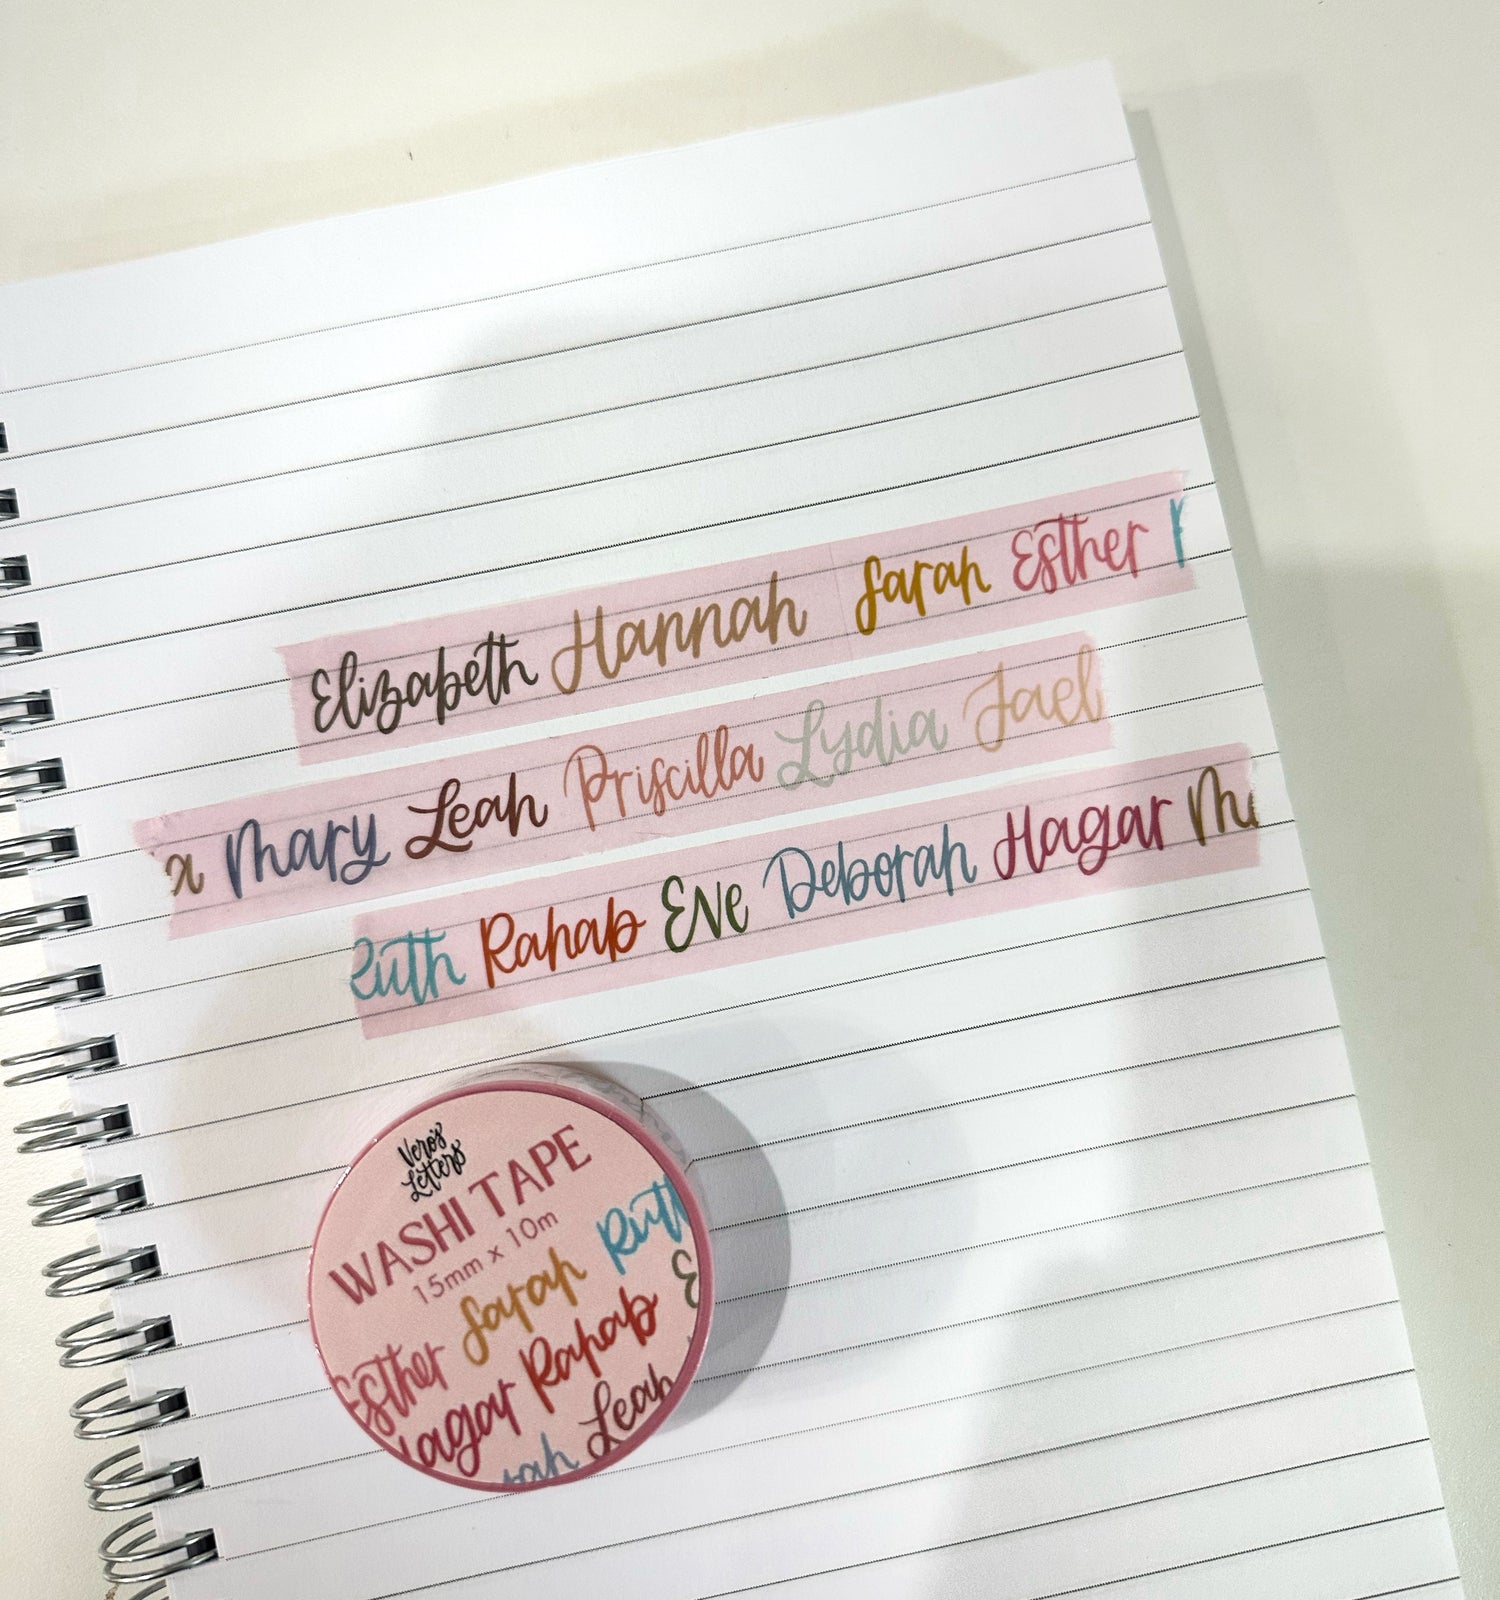 Elizabeth Hannah Sarah Esther
a Mary Leah Priscilla Lydia Jael
Ruth Rahab Eve Deborah Hagar
Vero's
Letters
WASHI TAPE
15mm x 10m
Esther Sarah Ruth
Hagar Rahab
Leah